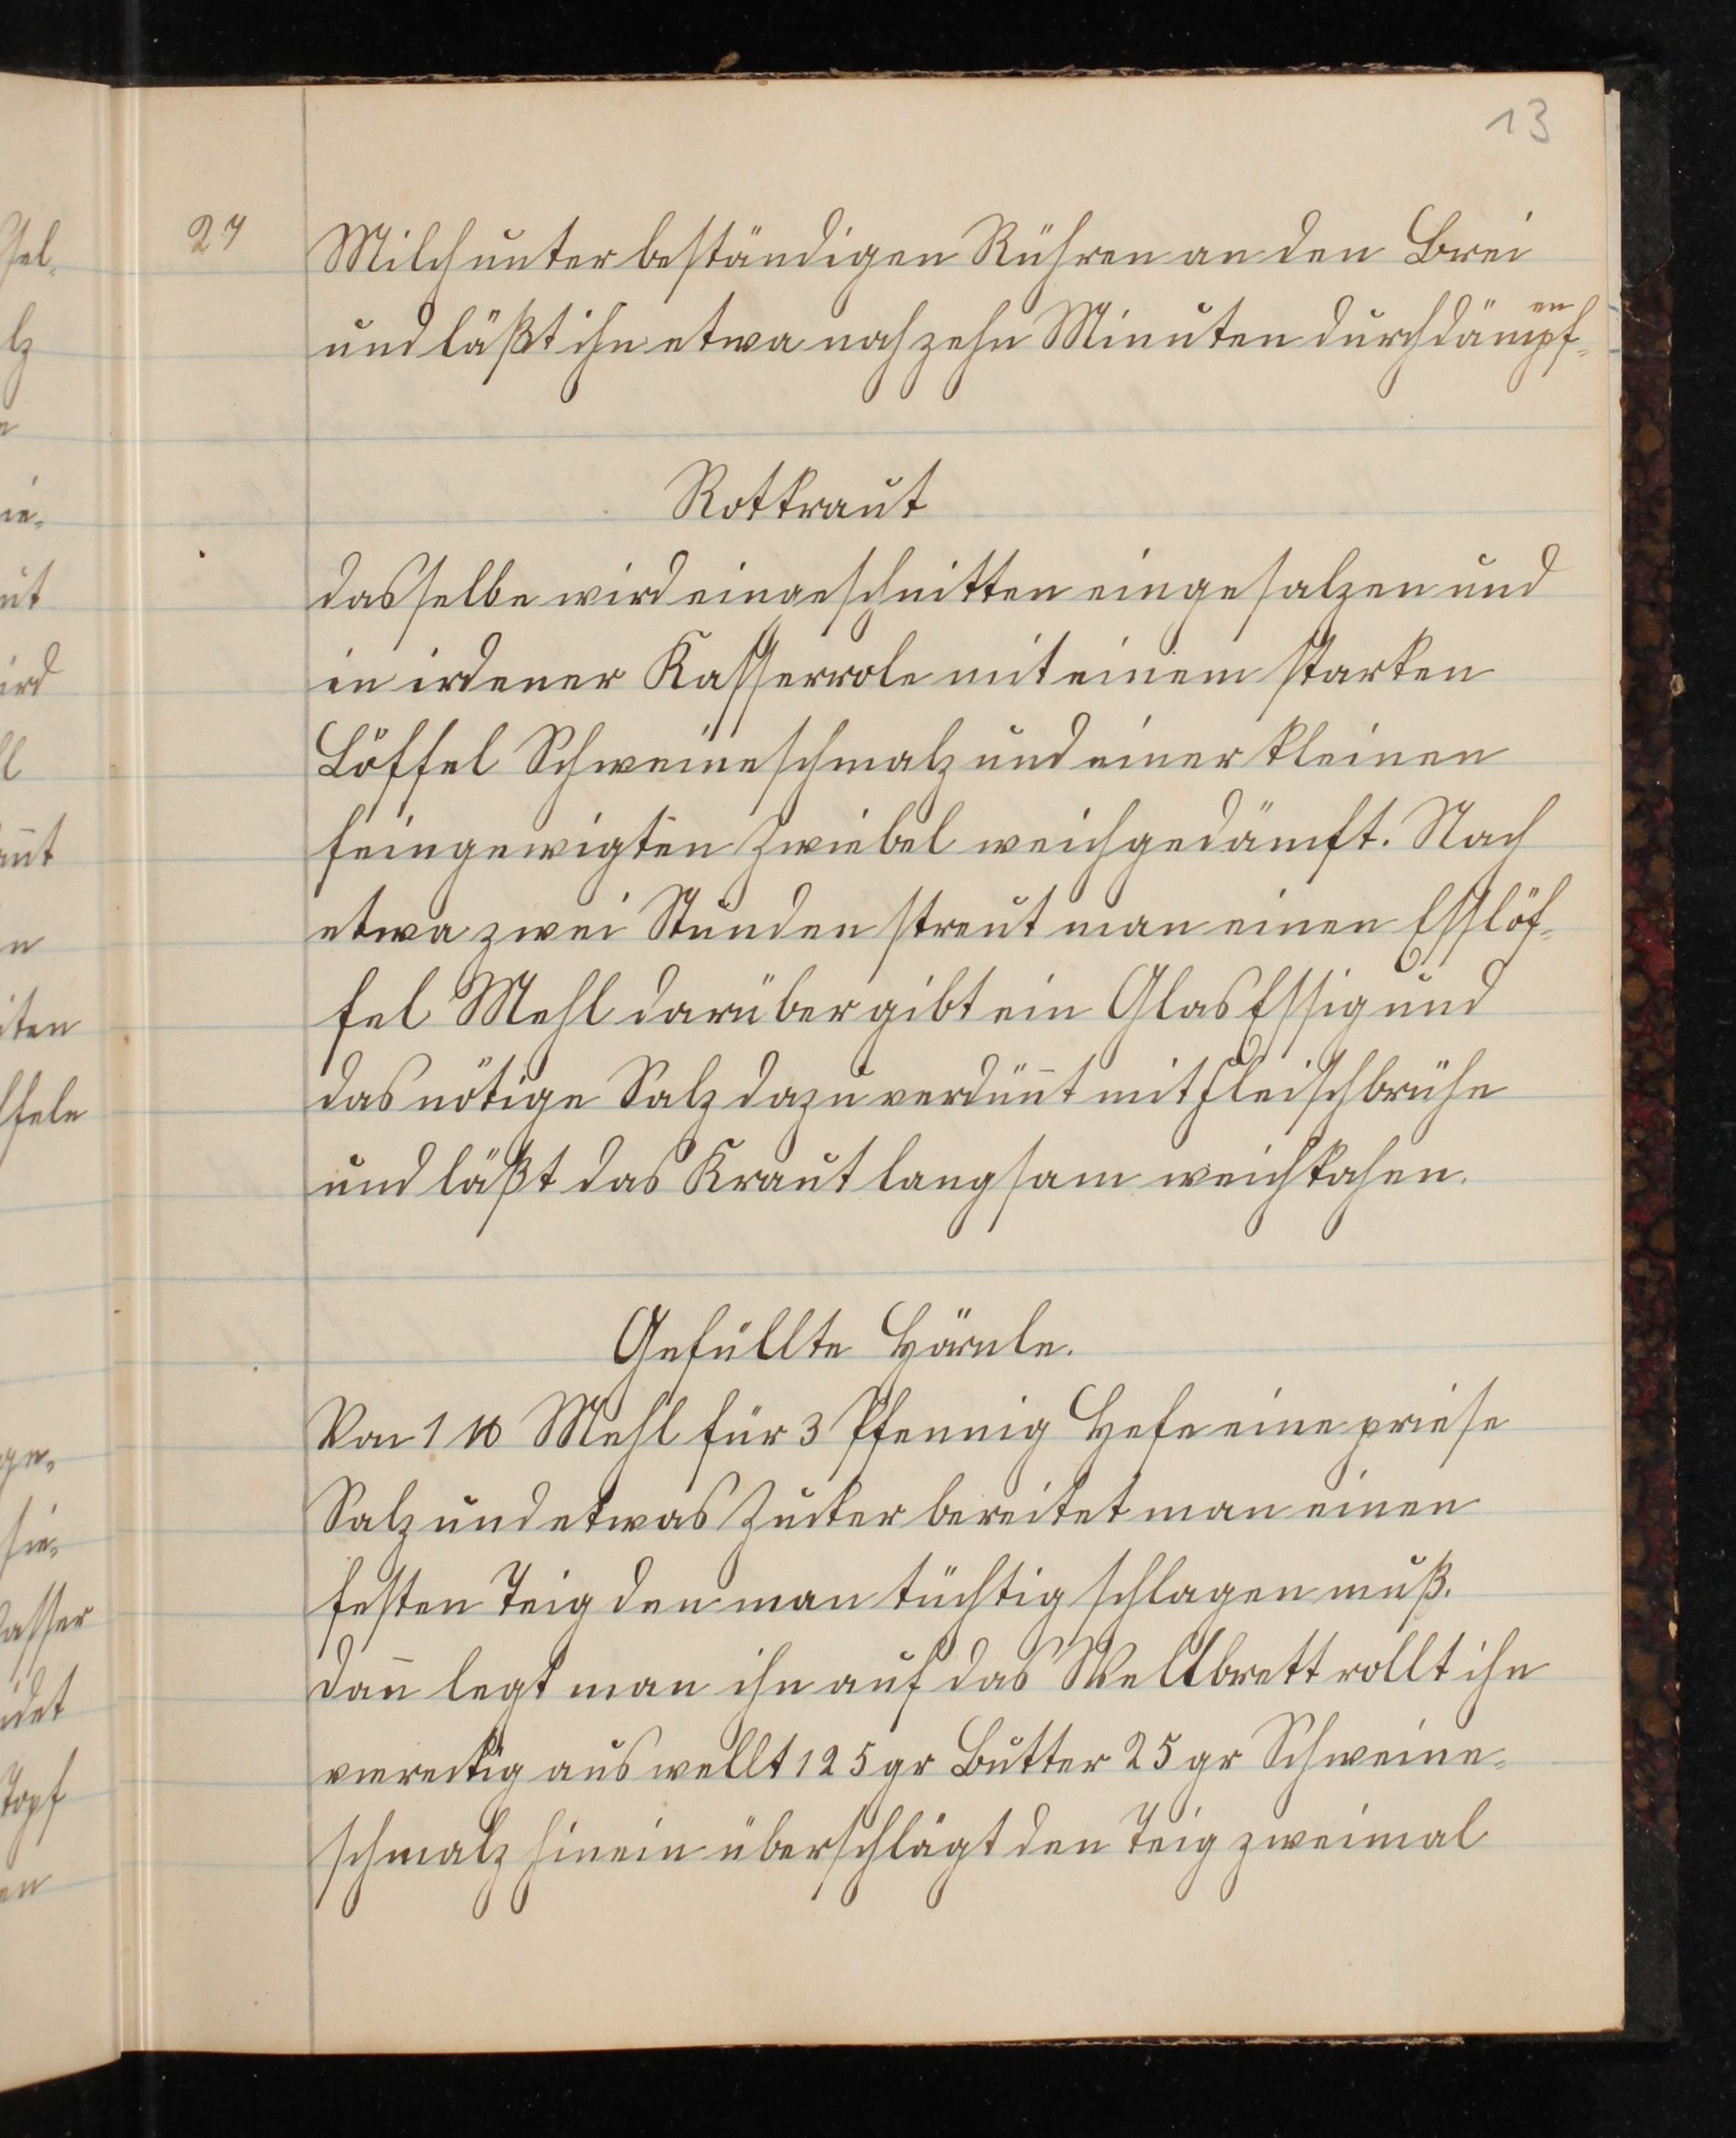 13
27
Milch unter beständigen Rühren an den Brei
und läßt ihn etwa noch zehn Minuten durchdämpf-
en
Rotkraut
dasselbe wird eingeschnitten eingesalzen und
in irdener Kasserrole mit einem starken
Löffel Schweineschmalz und einer kleinen
feingewigten Zwiebel weichgedämft. Nach
etwa zwei Stunden streut man einen Esslöf-
fel Mehl darüber gibt ein Glas Essig und
das nötige Salz dazu verdün̄t mit Fleischbrühe
und läßt das Kraut langsam weichkochen.
Gefüllte Hörnle.
Von 1 ℔ Mehl für 3 Pfennig Hefe eine priese
Salz und etwas Zucker bereitet man einen
festen Teig den man tüchtig schlagen muß.
dan̄ legt man ihn auf das Wellbrett rollt ihn
viereckig aus wellt 125 gr Butter 25 gr Schweine-
schmalz hinein überschlägt den Teig zweimal